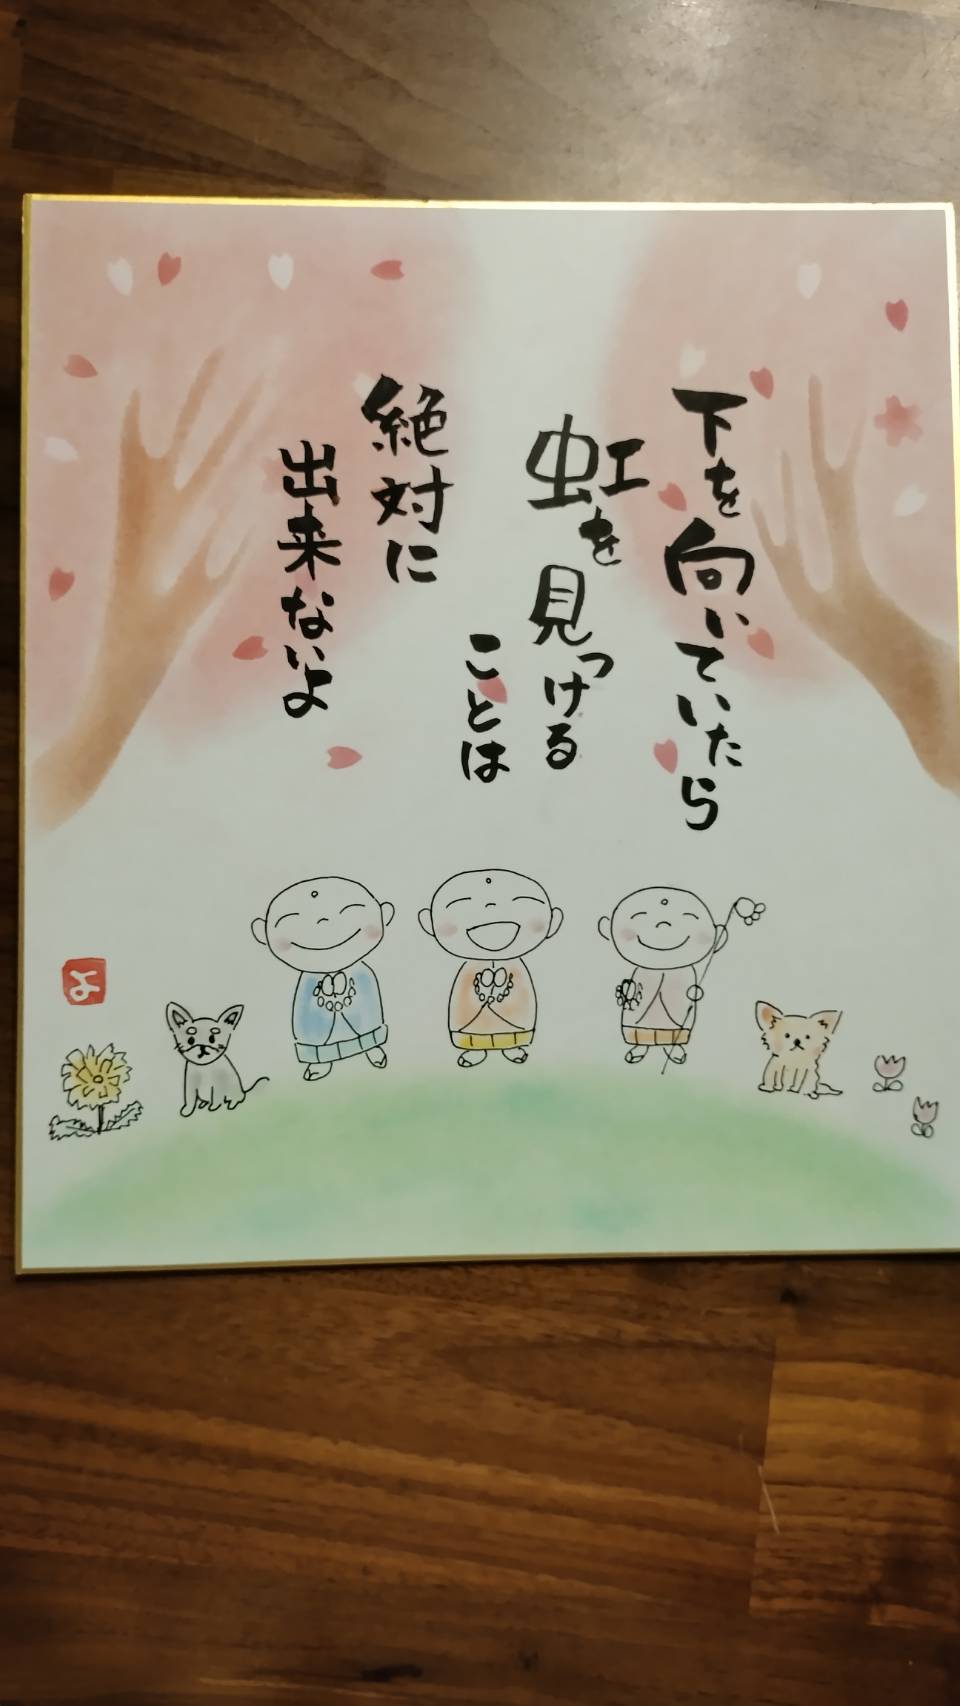 下を向いていたら
虹を見つける
ことは
絶対に
出来ないよ
よ